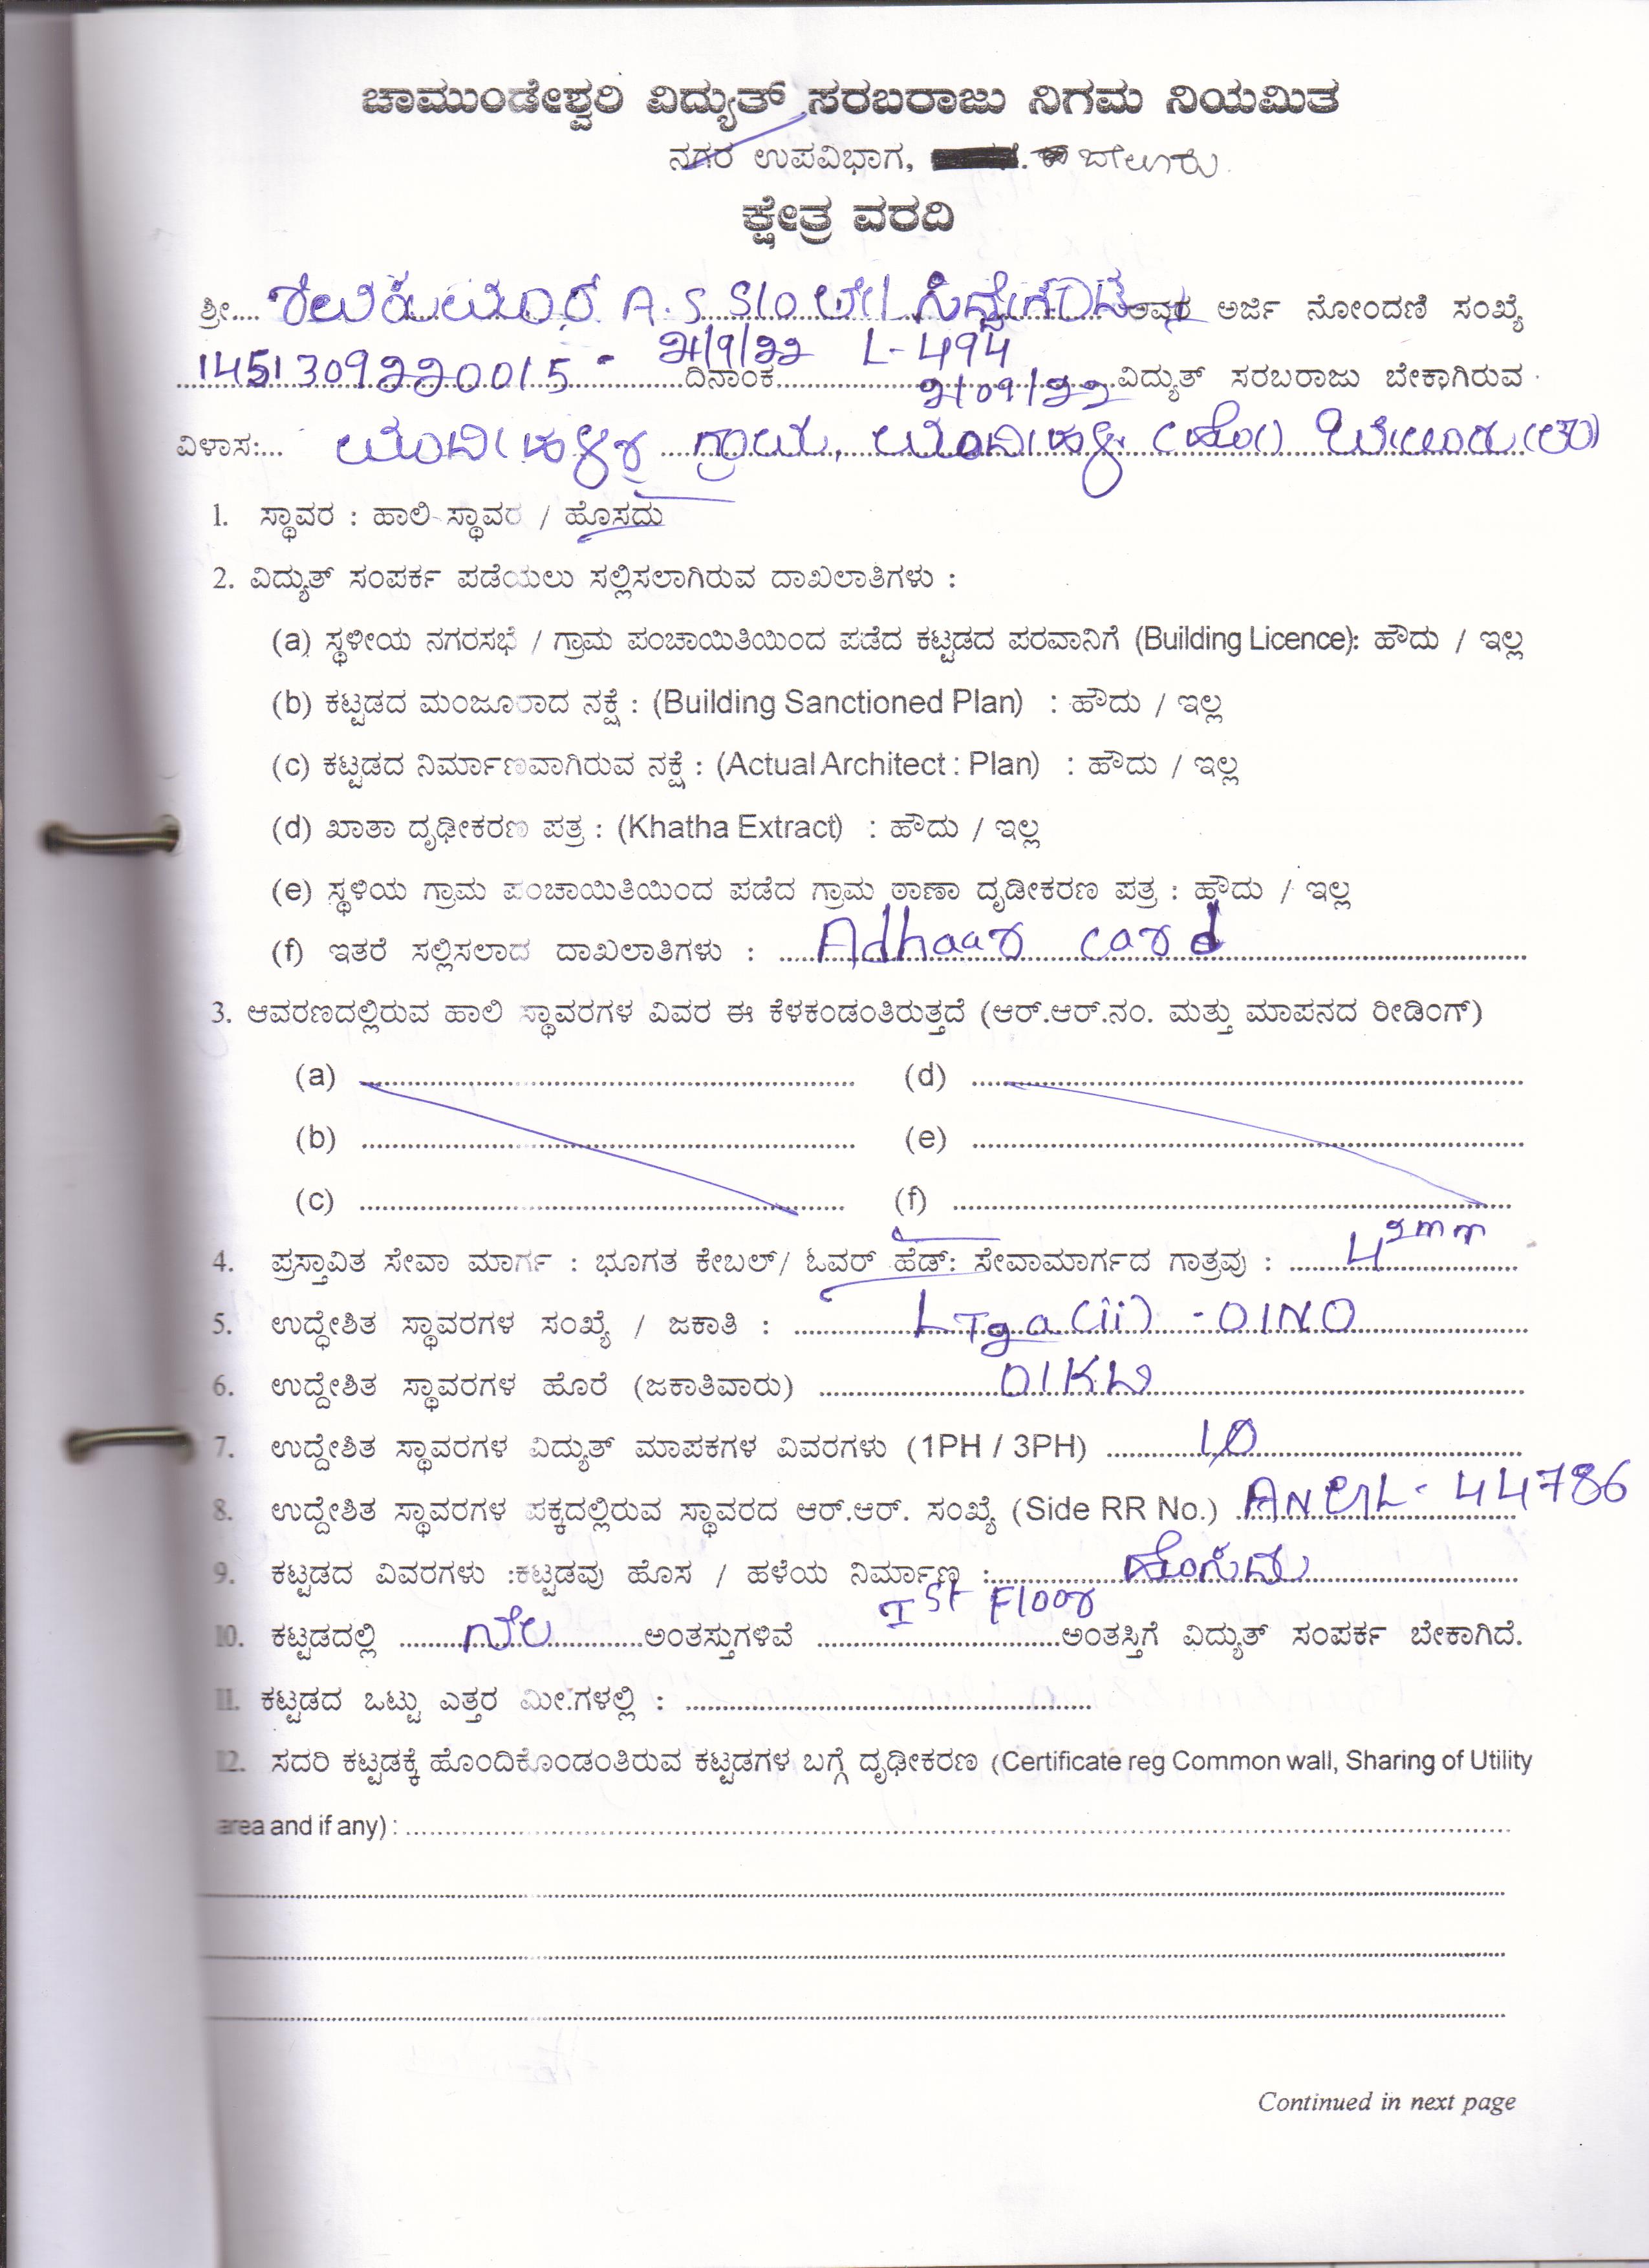 ಚಾಮುಂಡೇಶ್ವರಿ ವಿದ್ಯುತ್ ಸರಬರಾಜು ನಿಗಮ ನಿಯಮಿತ
ನಗರ ಉಪವಿಭಾಗ, ಬೇಲೂರು.
ಕ್ಷೇತ್ರ ವರದಿ
ಶ್ರೀ.... A.S S/o ಲೇ/ ಸಿದ್ದೇಗೌಡ ಅವರ ಅರ್ಜಿ ನೋಂದಣಿ ಸಂಖ್ಯೆ
2/9/22 L-494
1451309220015 - ದಿನಾಂಕ 2/09/22 ವಿದ್ಯುತ್ ಸರಬರಾಜು ಬೇಕಾಗಿರುವ
ವಿಳಾಸ:... ಗ್ರಾಮ, (ಹೋ) ಬೇಲೂರು (ತಾ)
1. ಸ್ಥಾವರ : ಹಾಲಿ ಸ್ಥಾವರ / ಹೊಸದು
2. ವಿದ್ಯುತ್ ಸಂಪರ್ಕ ಪಡೆಯಲು ಸಲ್ಲಿಸಲಾಗಿರುವ ದಾಖಲಾತಿಗಳು :
(a) ಸ್ಥಳೀಯ ನಗರಸಭೆ / ಗ್ರಾಮ ಪಂಚಾಯಿತಿಯಿಂದ ಪಡೆದ ಕಟ್ಟಡದ ಪರವಾನಿಗೆ (Building Licence): ಹೌದು / ಇಲ್ಲ
(b) ಕಟ್ಟಡದ ಮಂಜೂರಾದ ನಕ್ಷೆ : (Building Sanctioned Plan) : ಹೌದು / ಇಲ್ಲ
(c) ಕಟ್ಟಡದ ನಿರ್ಮಾಣವಾಗಿರುವ ನಕ್ಷೆ : (Actual Architect : Plan) : ಹೌದು / ಇಲ್ಲ
(d) ಖಾತಾ ದೃಢೀಕರಣ ಪತ್ರ : (Khatha Extract) : ಹೌದು / ಇಲ್ಲ
(e) ಸ್ಥಳಿಯ ಗ್ರಾಮ ಪಂಚಾಯಿತಿಯಿಂದ ಪಡೆದ ಗ್ರಾಮ ಠಾಣಾ ದೃಡೀಕರಣ ಪತ್ರ : ಹೌದು / ಇಲ್ಲ
(f) ಇತರೆ ಸಲ್ಲಿಸಲಾದ ದಾಖಲಾತಿಗಳು : Adhaar card
3. ಆವರಣದಲ್ಲಿರುವ ಹಾಲಿ ಸ್ಥಾವರಗಳ ವಿವರ ಈ ಕೆಳಕಂಡಂತಿರುತ್ತದೆ (ಆರ್.ಆರ್.ನಂ. ಮತ್ತು ಮಾಪನದ ರೀಡಿಂಗ್)
(a) (d)
(b) (e)
(c) (f)
4. ಪ್ರಸ್ತಾವಿತ ಸೇವಾ ಮಾರ್ಗ : ಭೂಗತ ಕೇಬಲ್/ ಓವರ್ ಹೆಡ್: ಸೇವಾಮಾರ್ಗದ ಗಾತ್ರವು : 4 2mm
5. ಉದ್ದೇಶಿತ ಸ್ಥಾವರಗಳ ಸಂಖ್ಯೆ / ಜಕಾತಿ : LT2a(ii) - 01NO
6. ಉದ್ದೇಶಿತ ಸ್ಥಾವರಗಳ ಹೊರೆ (ಜಕಾತಿವಾರು) 01KW
7. ಉದ್ದೇಶಿತ ಸ್ಥಾವರಗಳ ವಿದ್ಯುತ್ ಮಾಪಕಗಳ ವಿವರಗಳು (1PH / 3PH) 1Ø
8. ಉದ್ದೇಶಿತ ಸ್ಥಾವರಗಳ ಪಕ್ಕದಲ್ಲಿರುವ ಸ್ಥಾವರದ ಆರ್.ಆರ್. ಸಂಖ್ಯೆ (Side RR No.) 44786
9. ಕಟ್ಟಡದ ವಿವರಗಳು :ಕಟ್ಟಡವು ಹೊಸ / ಹಳೆಯ ನಿರ್ಮಾಣ : ಹೊಸದು
10. ಕಟ್ಟಡದಲ್ಲಿ ನೆಲ ಅಂತಸ್ತುಗಳಿವೆ Ist Floor ಅಂತಸ್ತಿಗೆ ವಿದ್ಯುತ್ ಸಂಪರ್ಕ ಬೇಕಾಗಿದೆ.
11. ಕಟ್ಟಡದ ಒಟ್ಟು ಎತ್ತರ ಮೀ.ಗಳಲ್ಲಿ :
12. ಸದರಿ ಕಟ್ಟಡಕ್ಕೆ ಹೊಂದಿಕೊಂಡಂತಿರುವ ಕಟ್ಟಡಗಳ ಬಗ್ಗೆ ದೃಢೀಕರಣ (Certificate reg Common wall, Sharing of Utility
area and if any) :
Continued in next page